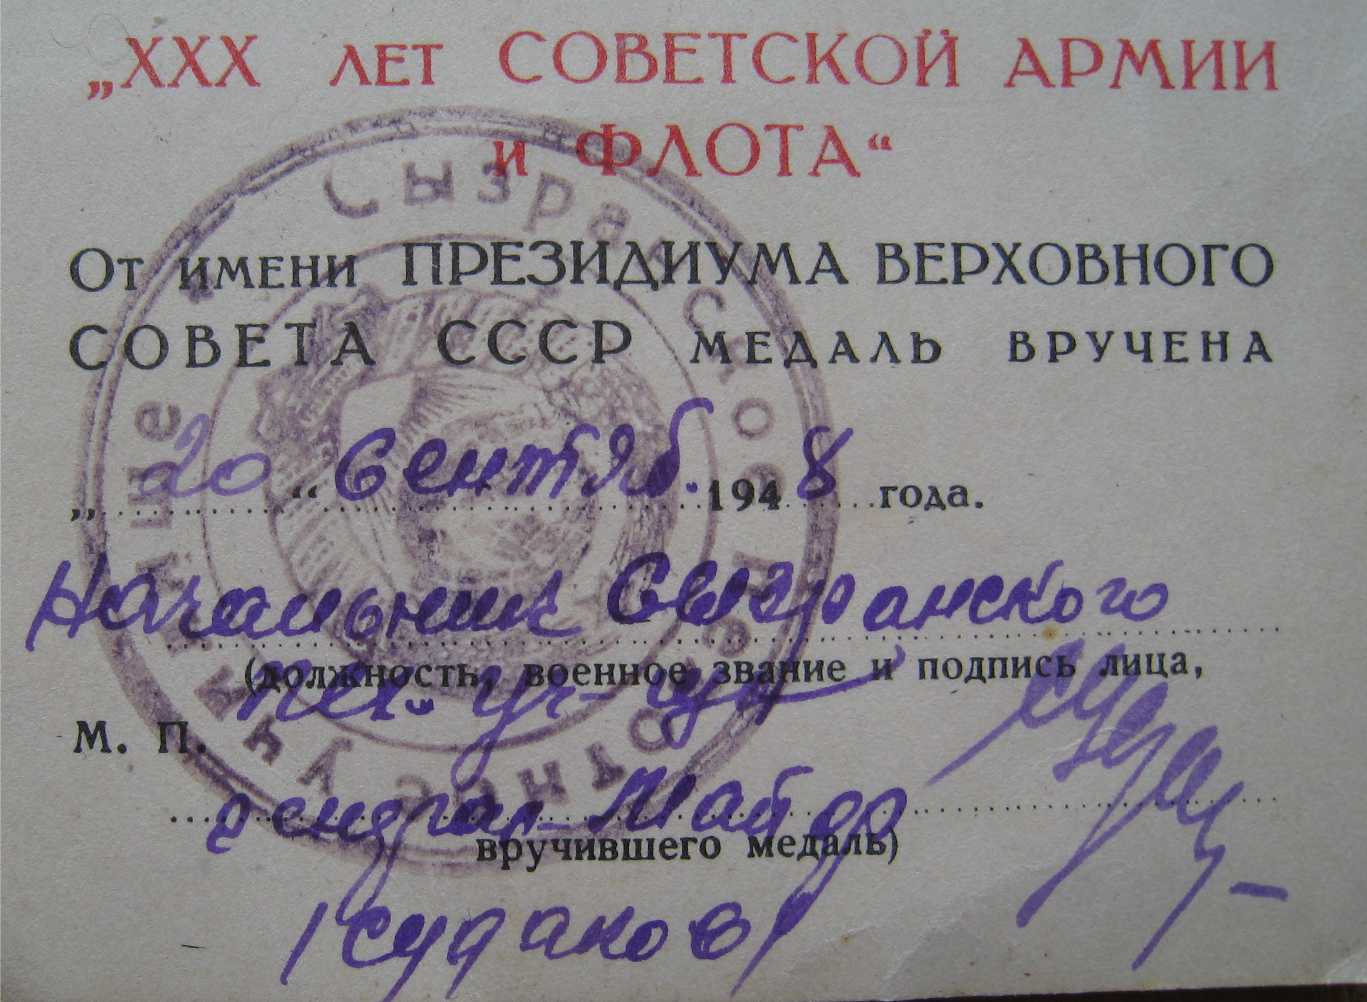 „XXX ЛЕТ СОВЕТСКОЙ АРМИИ
И ФЛОТА“
ОТ ИМЕНИ ПРЕЗИДИУМА ВЕРХОВНОГО
СОВЕТА СССР МЕДАЛЬ ВРУЧЕНА
„20“ Сентяб. 1948 года.
Начальник Сызранского
(должность, военное звание и подпись лица,
пех. уч-ща
М. П.
генерал-майор
вручившего медаль)
(Кудаков)
Сызранское пехотное училище